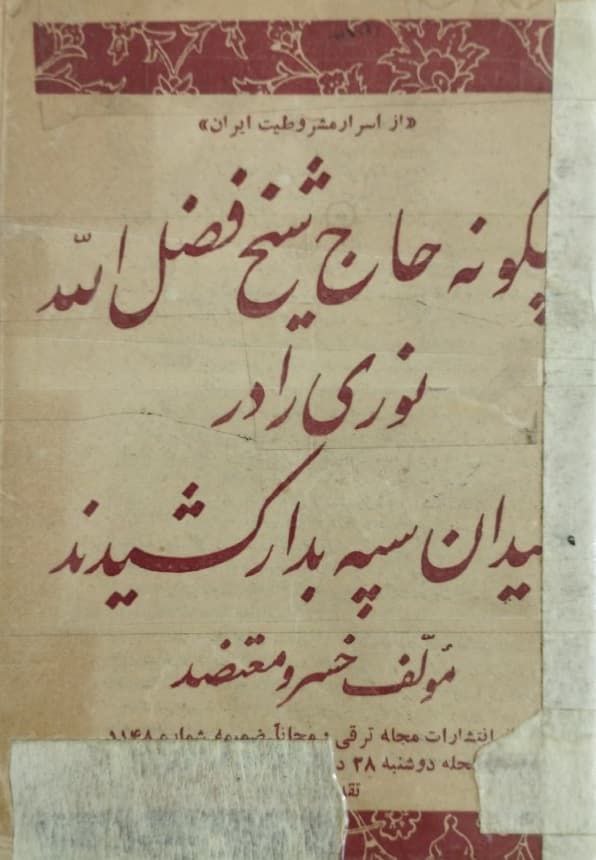 «از اسرار مشروطیت ایران»
چگونه حاج شیخ فضل الله
نوری را در
میدان سپه بدار کشیدند
مؤلف خسرو معتضد
انتشارات مجله ترقی و مجاناً ضمیمه شماره ۱۱۴۸
مجله دوشنبه ۲۸